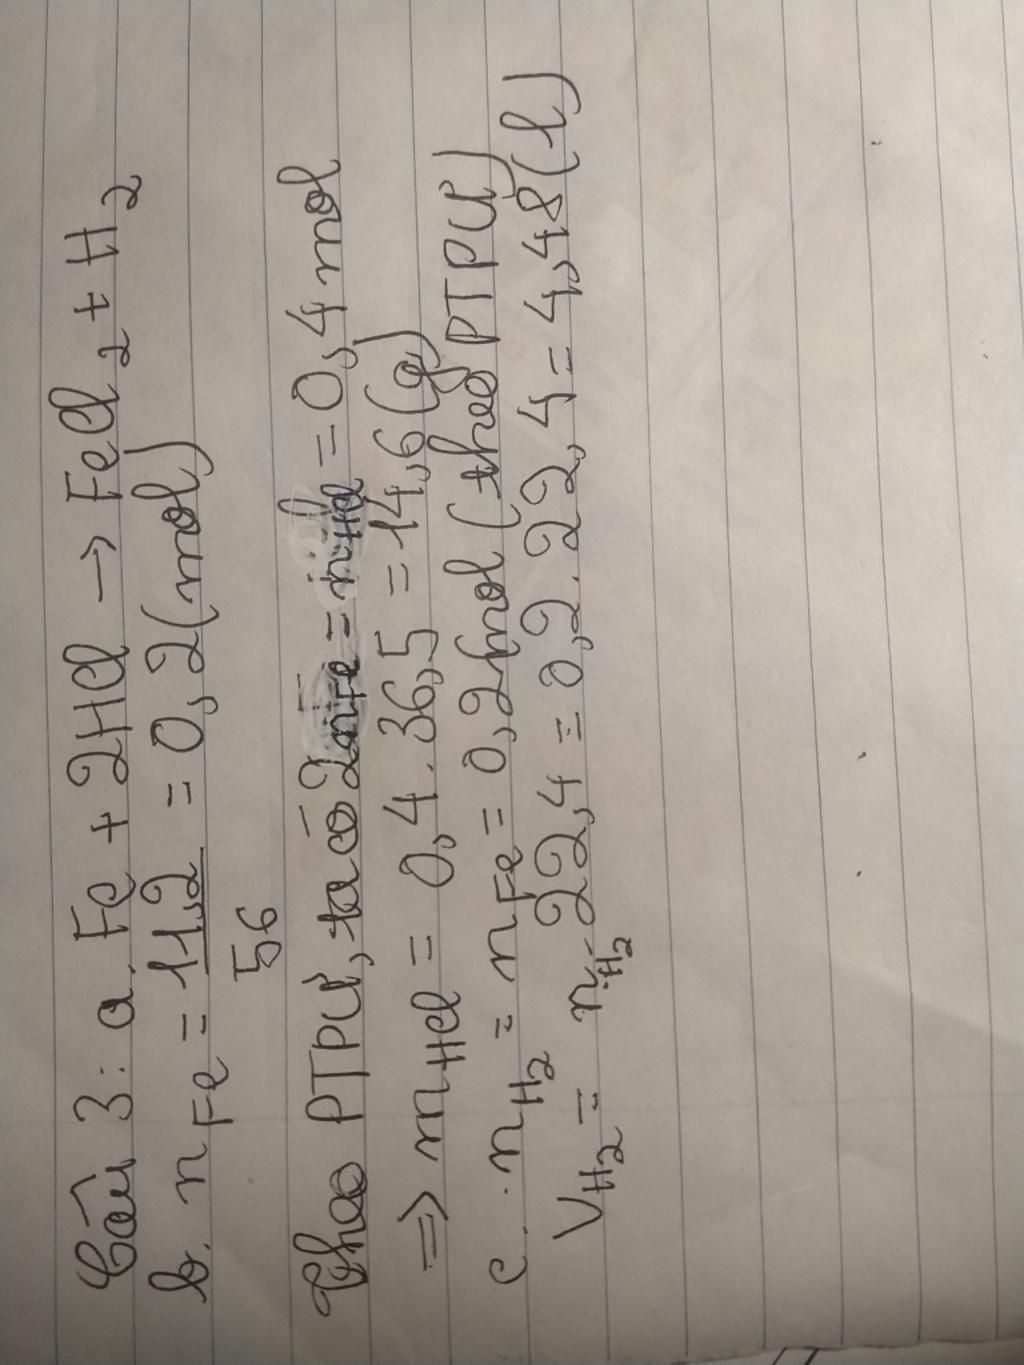 Câu 3: a. Fe + 2HCl → FeCl₂ + H₂
b. nFe = 11,2 = 0,2 (mol)
56
Theo PTPƯ, ta có 2nFe = nHCl = 0,4 mol
=> mHCl = 0,4 . 36,5 = 14,6 (g)
c. nH₂ = nFe = 0,2 mol (theo PTPƯ)
VH₂ = nH₂ . 22,4 = 0,2 . 22,4 = 4,48 (l)